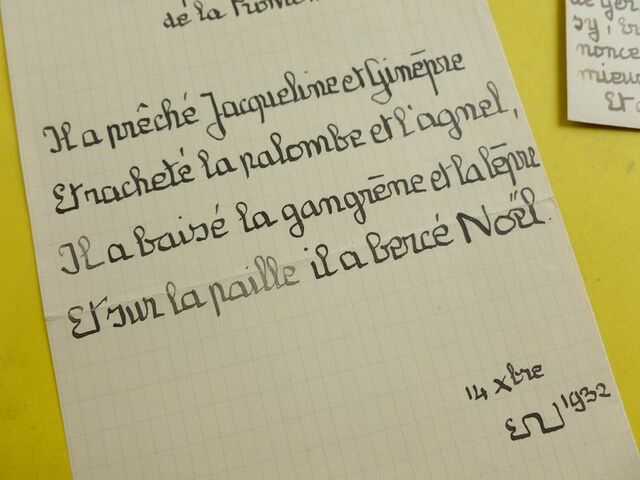 de la
Il a prêché Jacqueline et Ginèpre
Et racheté la palombe et l'agnel,
Il a baisé la gangrène et la lèpre
Et sur la paille il a bercé Noël.
14 Xbre
1932
sy,
nonce
mieu
Et